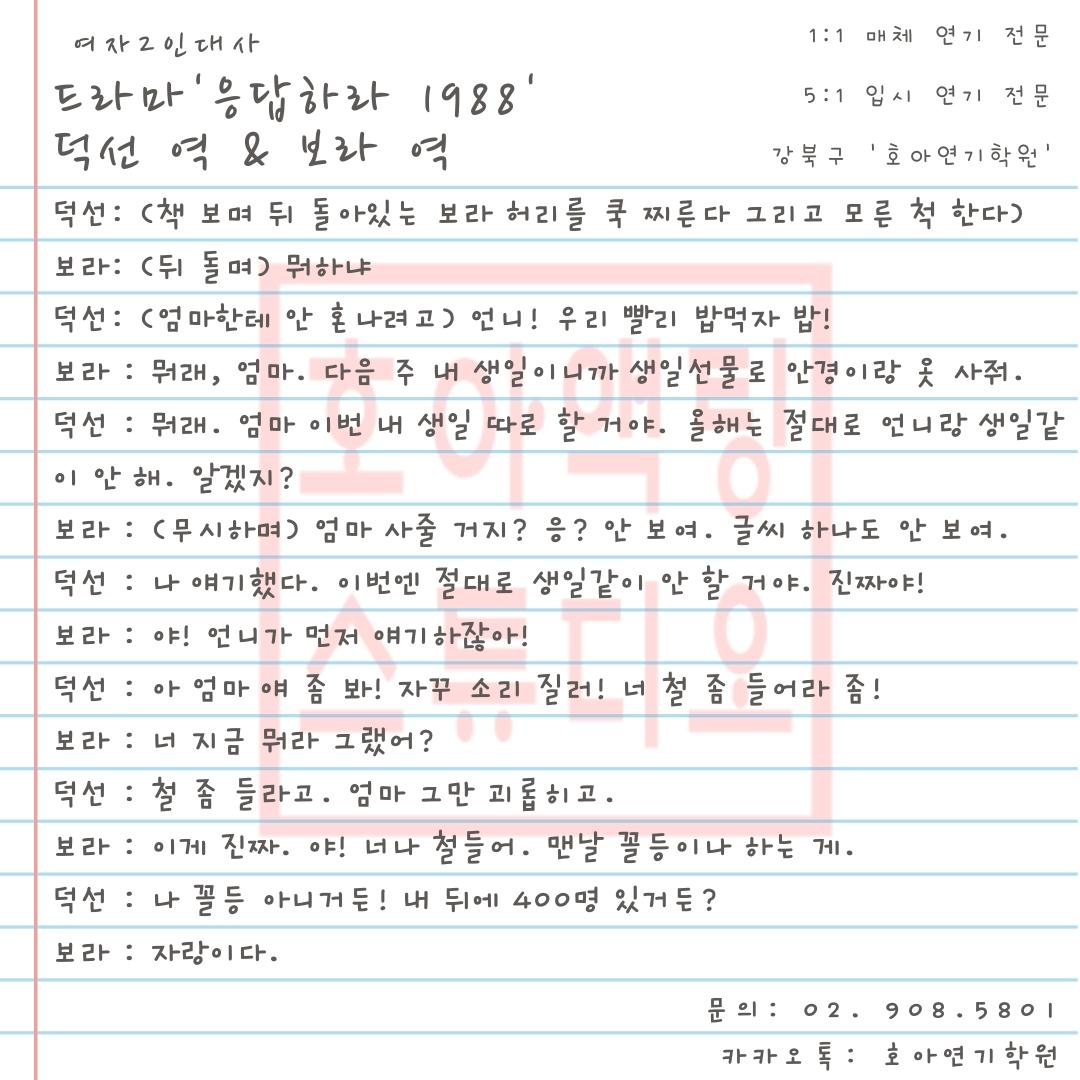 여자2인대사
드라마'응답하라 1988'
덕선 역 & 보라 역
1:1 매체 연기 전문
5:1 입시 연기 전문
강북구 '호아연기학원'
덕선: (책 보며 뒤 돌아있는 보라 허리를 쿡 찌른다 그리고 모른 척 한다)
보라: (뒤 돌며) 뭐하냐
덕선: (엄마한테 안 혼나려고) 언니! 우리 빨리 밥먹자 밥!
보라 : 뭐래, 엄마. 다음 주 내 생일이니까 생일선물로 안경이랑 옷 사줘.
덕선 : 뭐래. 엄마 이번 내 생일 따로 할 거야. 올해는 절대로 언니랑 생일같
이 안 해. 알겠지?
보라 : (무시하며) 엄마 사줄 거지? 응? 안 보여. 글씨 하나도 안 보여.
덕선 : 나 얘기했다. 이번엔 절대로 생일같이 안 할 거야. 진짜야!
보라 : 야! 언니가 먼저 얘기하잖아!
덕선 : 아 엄마 얘 좀 봐! 자꾸 소리 질러! 너 철 좀 들어라 좀!
보라 : 너 지금 뭐라 그랬어?
덕선 : 철 좀 들라고. 엄마 그만 괴롭히고.
보라 : 이게 진짜. 야! 너나 철들어. 맨날 꼴등이나 하는 게.
덕선 : 나 꼴등 아니거든! 내 뒤에 400명 있거든?
보라 : 자랑이다.
문의: 02. 908.5801
카카오톡: 호아연기학원
호아액팅
스튜디오